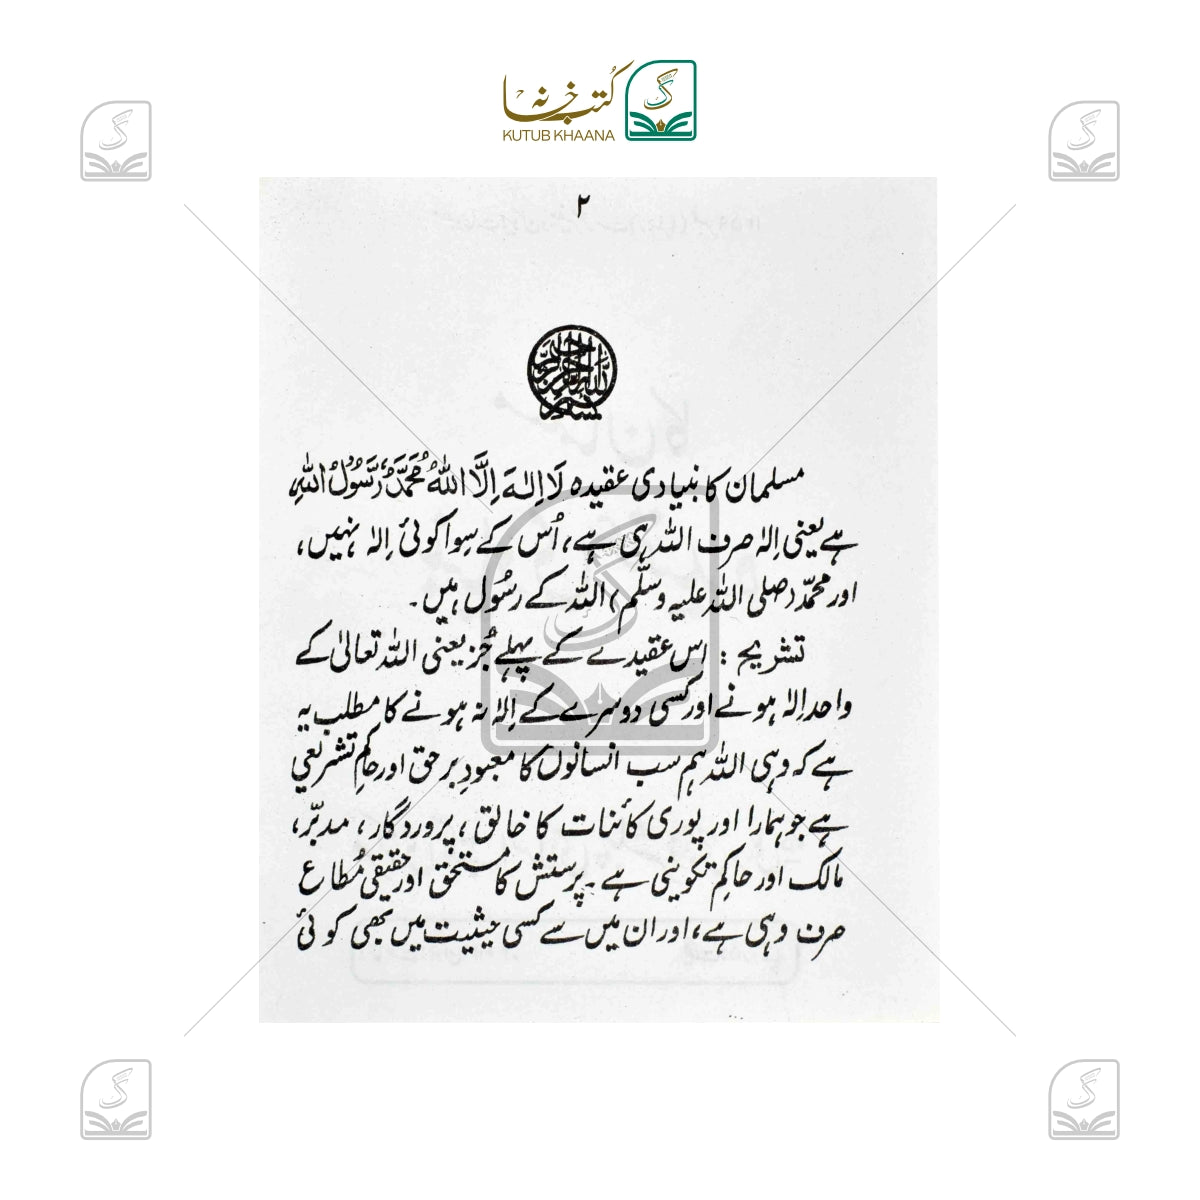 کتب خانہ
KUTUB KHAANA
۲
مسلمان کا بنیادی عقیدہ لَا اِلٰهَ اِلَّا اللّٰهُ مُحَمَّدٌ رَّسُوْلُ اللّٰهِ
ہے یعنی اِلٰہ صرف اللہ ہی ہے، اُس کے سِوا کوئی اِلٰہ نہیں،
اور محمدّ (صلی اللہ علیہ وسلّم) اللہ کے رسُول ہیں۔
تشریح : اس عقیدے کے پہلے جُز یعنی اللہ تعالیٰ کے
واحد اِلٰہ ہونے اور کسی دوسرے کے اِلٰہ نہ ہونے کا مطلب یہ
ہے کہ وہی اللہ ہم سب انسانوں کا معبودِ برحق اور حاکمِ تشریعی
ہے جو ہمارا اور پوری کائنات کا خالق، پروردگار، مدبّر،
مالک اور حاکمِ تکوینی ہے۔ پرستش کا مستحق اور حقیقی مُطاع
صرف وہی ہے، اور ان میں سے کسی حیثیت میں بھی کوئی